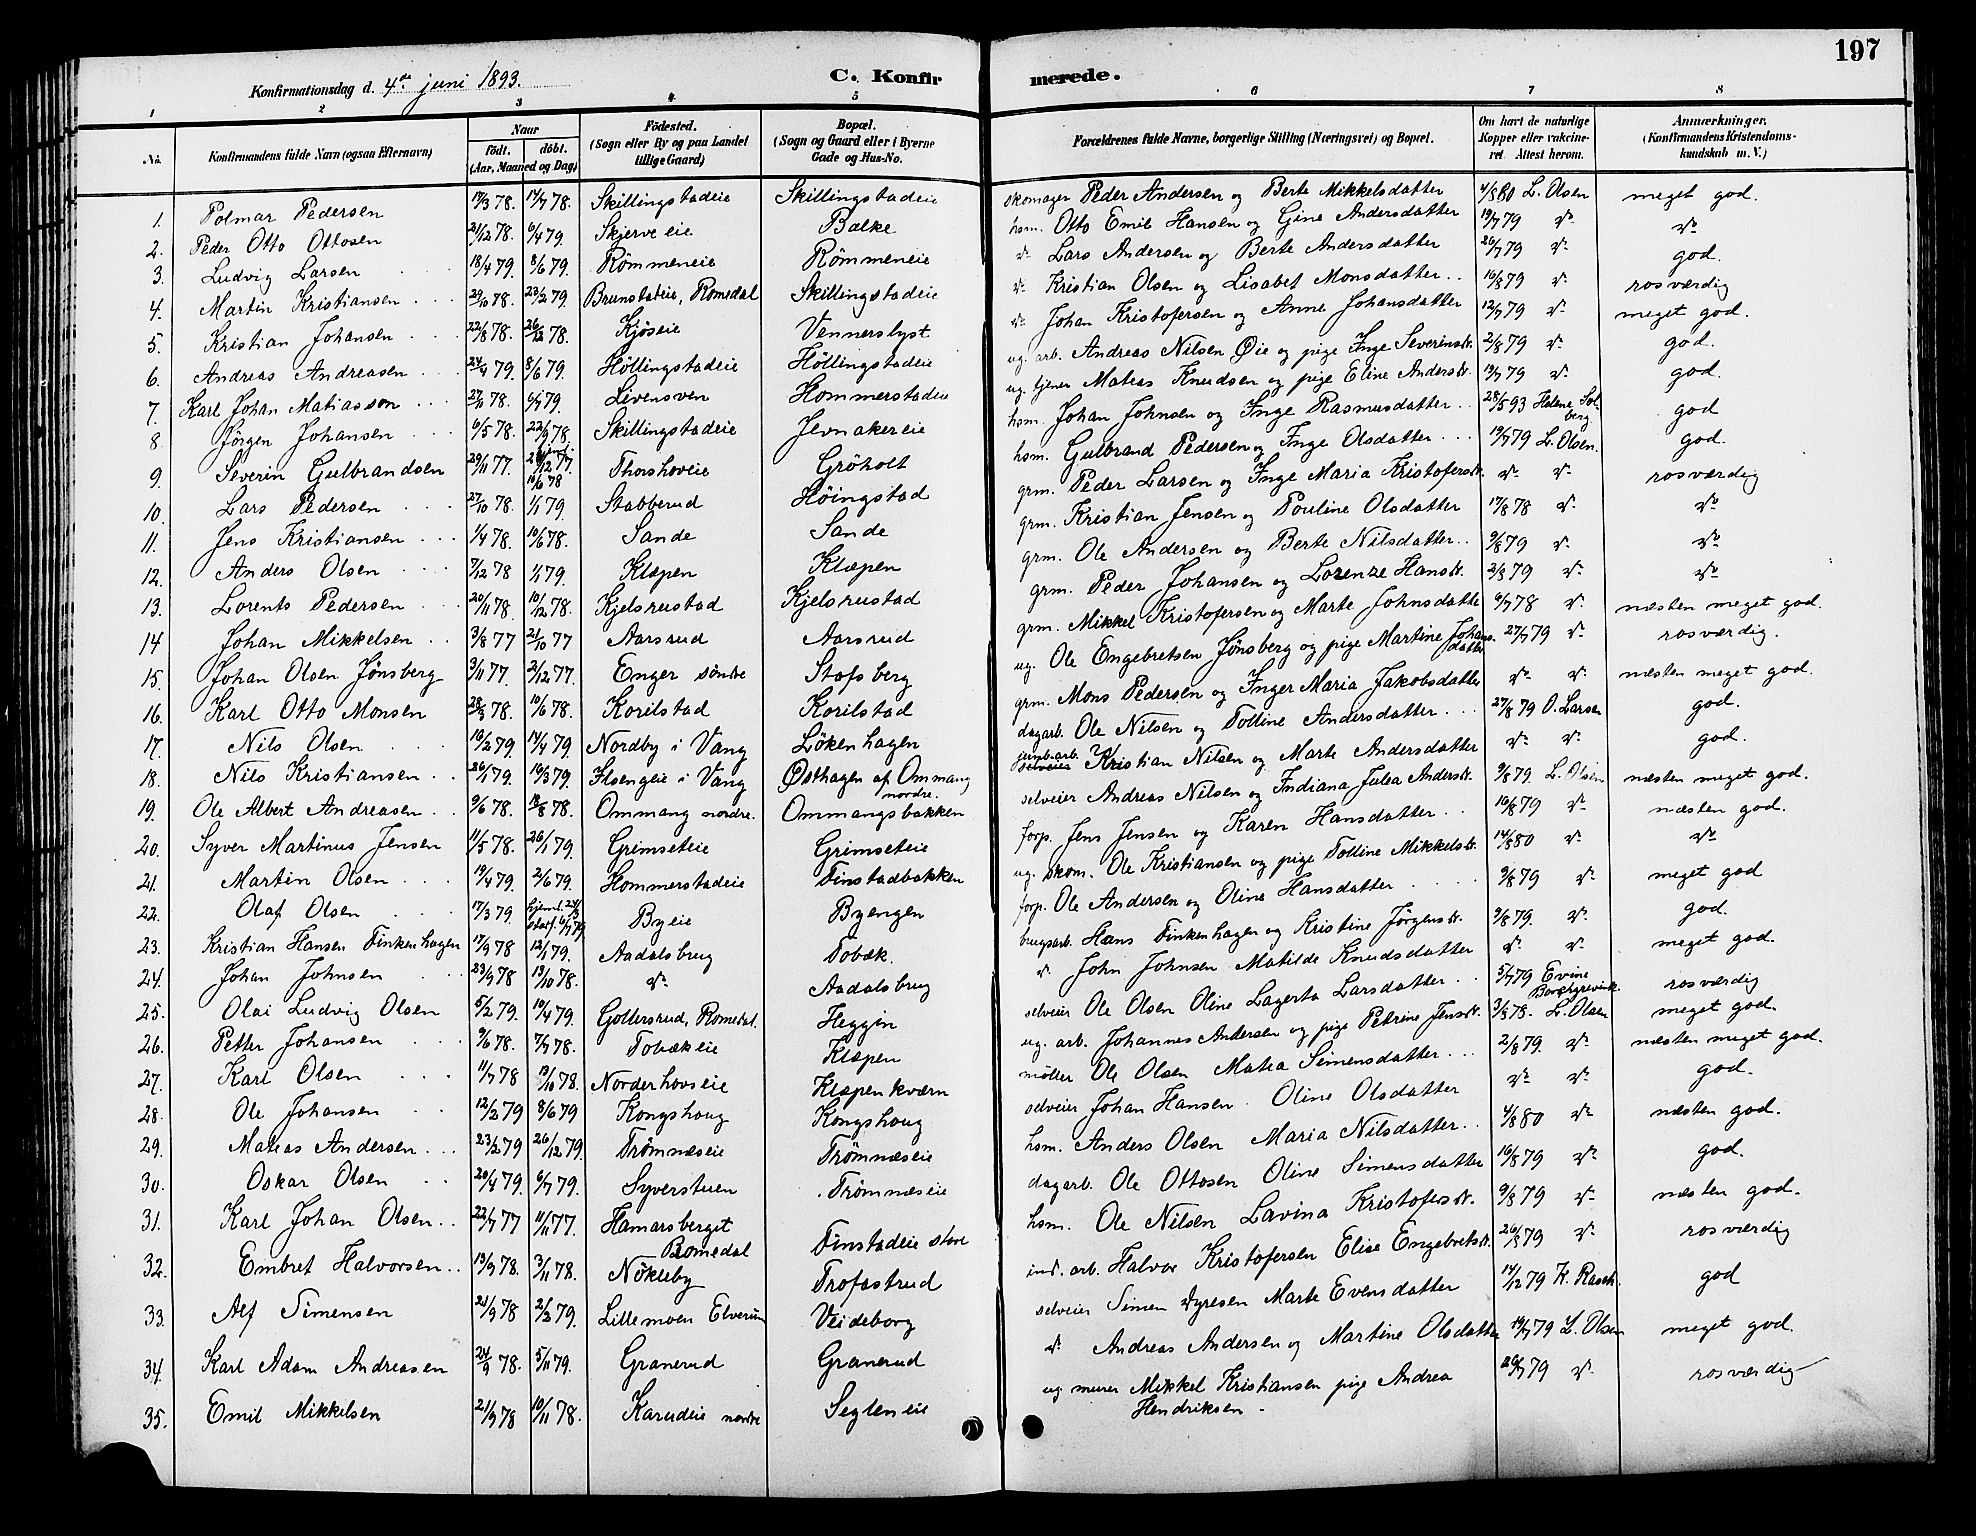 197
Konfirmationsdag d. 4de juni 1893. C. Konfirmerede.
1 2 3 4 5 6 7 8
No. Konfirmandens fulde Navn (ogsaa Efternavn) Naar födt. döbt. (Aar, Maaned og Dag) Födested. (Sogn eller By og paa Landet tillige Gaard) Bopæl. (Sogn og Gaard eller i Byerne Gade og Hus-No. Forældrenes fulde Navne, borgerlige Stilling (Næringsvei) og Bopæl. Om havt de naturlige Kopper eller vakcineret. Attest herom. Anmærkninger. (Konfirmandens Kristendomskundskab m. V.)
1. Polmar Pedersen 78. 78. Skillingstadeie Skillingstadeie skomager Peder Andersen og Berte Mikkelsdatter 4/8 80 L. Olsen meget god.
2. Peder Otto Ottosen 21/12 78. 6/4 79. Skjerveeie Balke hsm. Otto Emil Hansen og Gine Andersdatter 19/7 79 do do
3. Ludvig Larsen 18/4 79. 8/6 79. Römmeneie Römmeneie do Lars Andersen og Berte Andersdatter 26/7 79 do god.
4. Martin Kristiansen 29/10 78. 23/2 79. Brunstadeie, Romedal Skillingstadeie do Kristian Olsen og Lisabet Monsdatter 16/8 79 do rosværdig
5. Kristian Johansen 22/8 78. 26/12 78. Kjöseie Vennerslyst do Johan Kristofersen og Anne Johansdatter 12/7 79 do meget god.
6. Andreas Andreasen 24/4 79. 8/6 79. Höllingstadeie Höllingstadeie ug. arb. Andreas Nilsen Öie og pige Inge Severinsdr. 2/8 79 do god.
7. Karl Johan Matiasson 78. 79. Levensven Hommerstadeie ug. tjener Matias Knudsen og pige Eline Andersdr. 19/7 79 do god.
8. Jörgen Johansen 6/5 78. 22/9 78. Skillingstadeie Jevnakereie hsm. Johan Johnsen og Inge Rasmusdatter 28/5 93 Helene Solberg god
9. Severin Gulbrandsen 29/11 77. 12 77. 10/6 78 Thorshoveie Gröholt hsm. Gulbrand Pedersen og Inge Olsdatter 19/7 79 L. Olsen. god.
10. Lars Pedersen 27/10 78. 1/1 79. Stabberud Höingstad grm. Peder Larsen og Inge Maria Kristofersdr. do do rosværdig
11. Jens Kristiansen 1/4 78. 10/6 78. Sande Sande grm. Kristian Jensen og Pouline Olsdatter 17/8 78 do do
12. Anders Olsen 7/12 78 1/1 79. Klæpen Klæpen grm. Ole Andersen og Berte Nilsdatter 9/8 79 do do
13. Lorents Pedersen 20/11 78. 10/12 78. Kjelsrustad Kjelsrustad grm. Peder Johansen og Lorenze Hansdr. 2/8 79 do do
14 Johan Mikkelsen 3/8 77 21/10 77 Aarsrud Aarsrud grm. Mikkel Kristofersen og Marte Johnsdatter 6/7 78 do næsten meget god.
15. Johan Olsen Jönsberg 3/11 77. 2/12 77. Enger söndre Stafsberg ug. Ole Engebretsen Jönsberg og pige Martine Johansdatter 27/7 79 do rosværdig.
16. Karl Otto Monsen 28/3 78. 10/6 78. Korilstad Korilstad grm. Mons Pedersen og Inger Maria Jakobsdatter do do næsten meget god.
17. Nils Olsen 10/2 79. 14/4 79. Nordby i Vang Lökenhagen dagarb. Ole Nilsen og Polline Andersdatter 27/8 79 O. Larsen god.
18. Nils Kristiansen 26/1 79. 10/3 79. Ilsengeie i Vang Östhagen af Ommang nordre. jernb.arb. Kristian Nilsen og Marte Andersdatter do do god.
19. Ole Albert Andreasen 9/6 78. 18/8 78. Ommang nordre. Ommangsbakken selveier Andreas Nilsen og Indiana Julea Andersdr. 9/8 79. L. Olsen næsten meget god.
20. Syver Martinus Jensen 11/5 78. 26/1 79. Grimseteie Grimseteie forp. Jens Jensen og Karen Hansdatter 16/8 79 do næsten god.
21. Martin Olsen 19/4 79. 2/6 79. Hommerstadeie Finstadbakken ug. skom. Ole Kristiansen og pige Polline Mikkelsdr. 14/8 80 do do
22. Olaf Olsen 17/3 79. Byeie Byengen forp. Ole Andersen og Oline Hansdatter 9/8 79 do meget god
23. Kristian Hansen Finkenhagen 17/9 78 12/1 79. Aadalsbrug Tobæk. brugsarb. Hans Finkenhagen og Kristine Jörgensdr. 9/8 79. do god.
24. Johan Johnsen 23/9 78 13/10 78. do Aadalsbrug do John Johnsen Matilde Knudsdatter do do meget god.
25. Olai Ludvig Olsen 5/2 79. 10/4 79. Gollersrud, Romedal. Heggin selveier Ole Olsen Oline Lagerta Larsdatter 5/7 79 Evine rosværdig
26. Petter Johansen 9/6 78. 7/7 78. Tobækeie Klæpen ug. arb. Johannes Andersen og pige Petrine Jensdr. 3/8 78. L. Olsen meget god.
27. Karl Olsen 11/7 78 13/10 78. Norderhovseie Klæpenkværn möller Ole Olsen Matea Simensdatter 2/8 79. do næsten meget god.
28. Ole Johansen 12/2 79 8/6 79 Kongshoug Kongshoug selveier Johan Hansen Oline Olsdatter do do god.
29. Matias Andersen 23/2 79 26/12 79. Trömnæseie Trömnæseie hsm. Anders Olsen Maria Nilsdatter 4/8 80 do næsten god.
30. Oskar Olsen 20/4 79. 6/7 79. Syverstuen Trömnæseie dagarb. Ole Ottosen Oline Simensdatter 16/8 79 do god.
31. Karl Johan Olsen 22/7 77 11/11 77. Hamarsberget Romedal Finstadeie store hsm. Ole Nilsen Lavina Kristofersdr. 9/8 79 do næsten god.
32. Embret Halvorsen 13/9 78. 3/11 78. Nökleby Trofastrud ind. arb. Halvor Kristofersen Elise Engebretsdr. 26/8 79 do rosværdig
33. Alf Simensen 21/9 78 2/2 79. Lillemoen Elverum Veideborg selveier Simen Syresen Marte Evensdatter 14/12 79 K. Rasch. god
34. Karl Adam Andreasen 24/9 78. 5/11 79. Granerud Granerud do Andreas Andersen og Martine Olsdatter 19/7 79 L. Olsen meget god.
35. Emil Mikkelsen 21/9 78 10/11 78. Karudeie nordre Segleneie ug murer Mikkel Kristiansen pige Andrea Hendriksen 26/7 79 do rosværdig